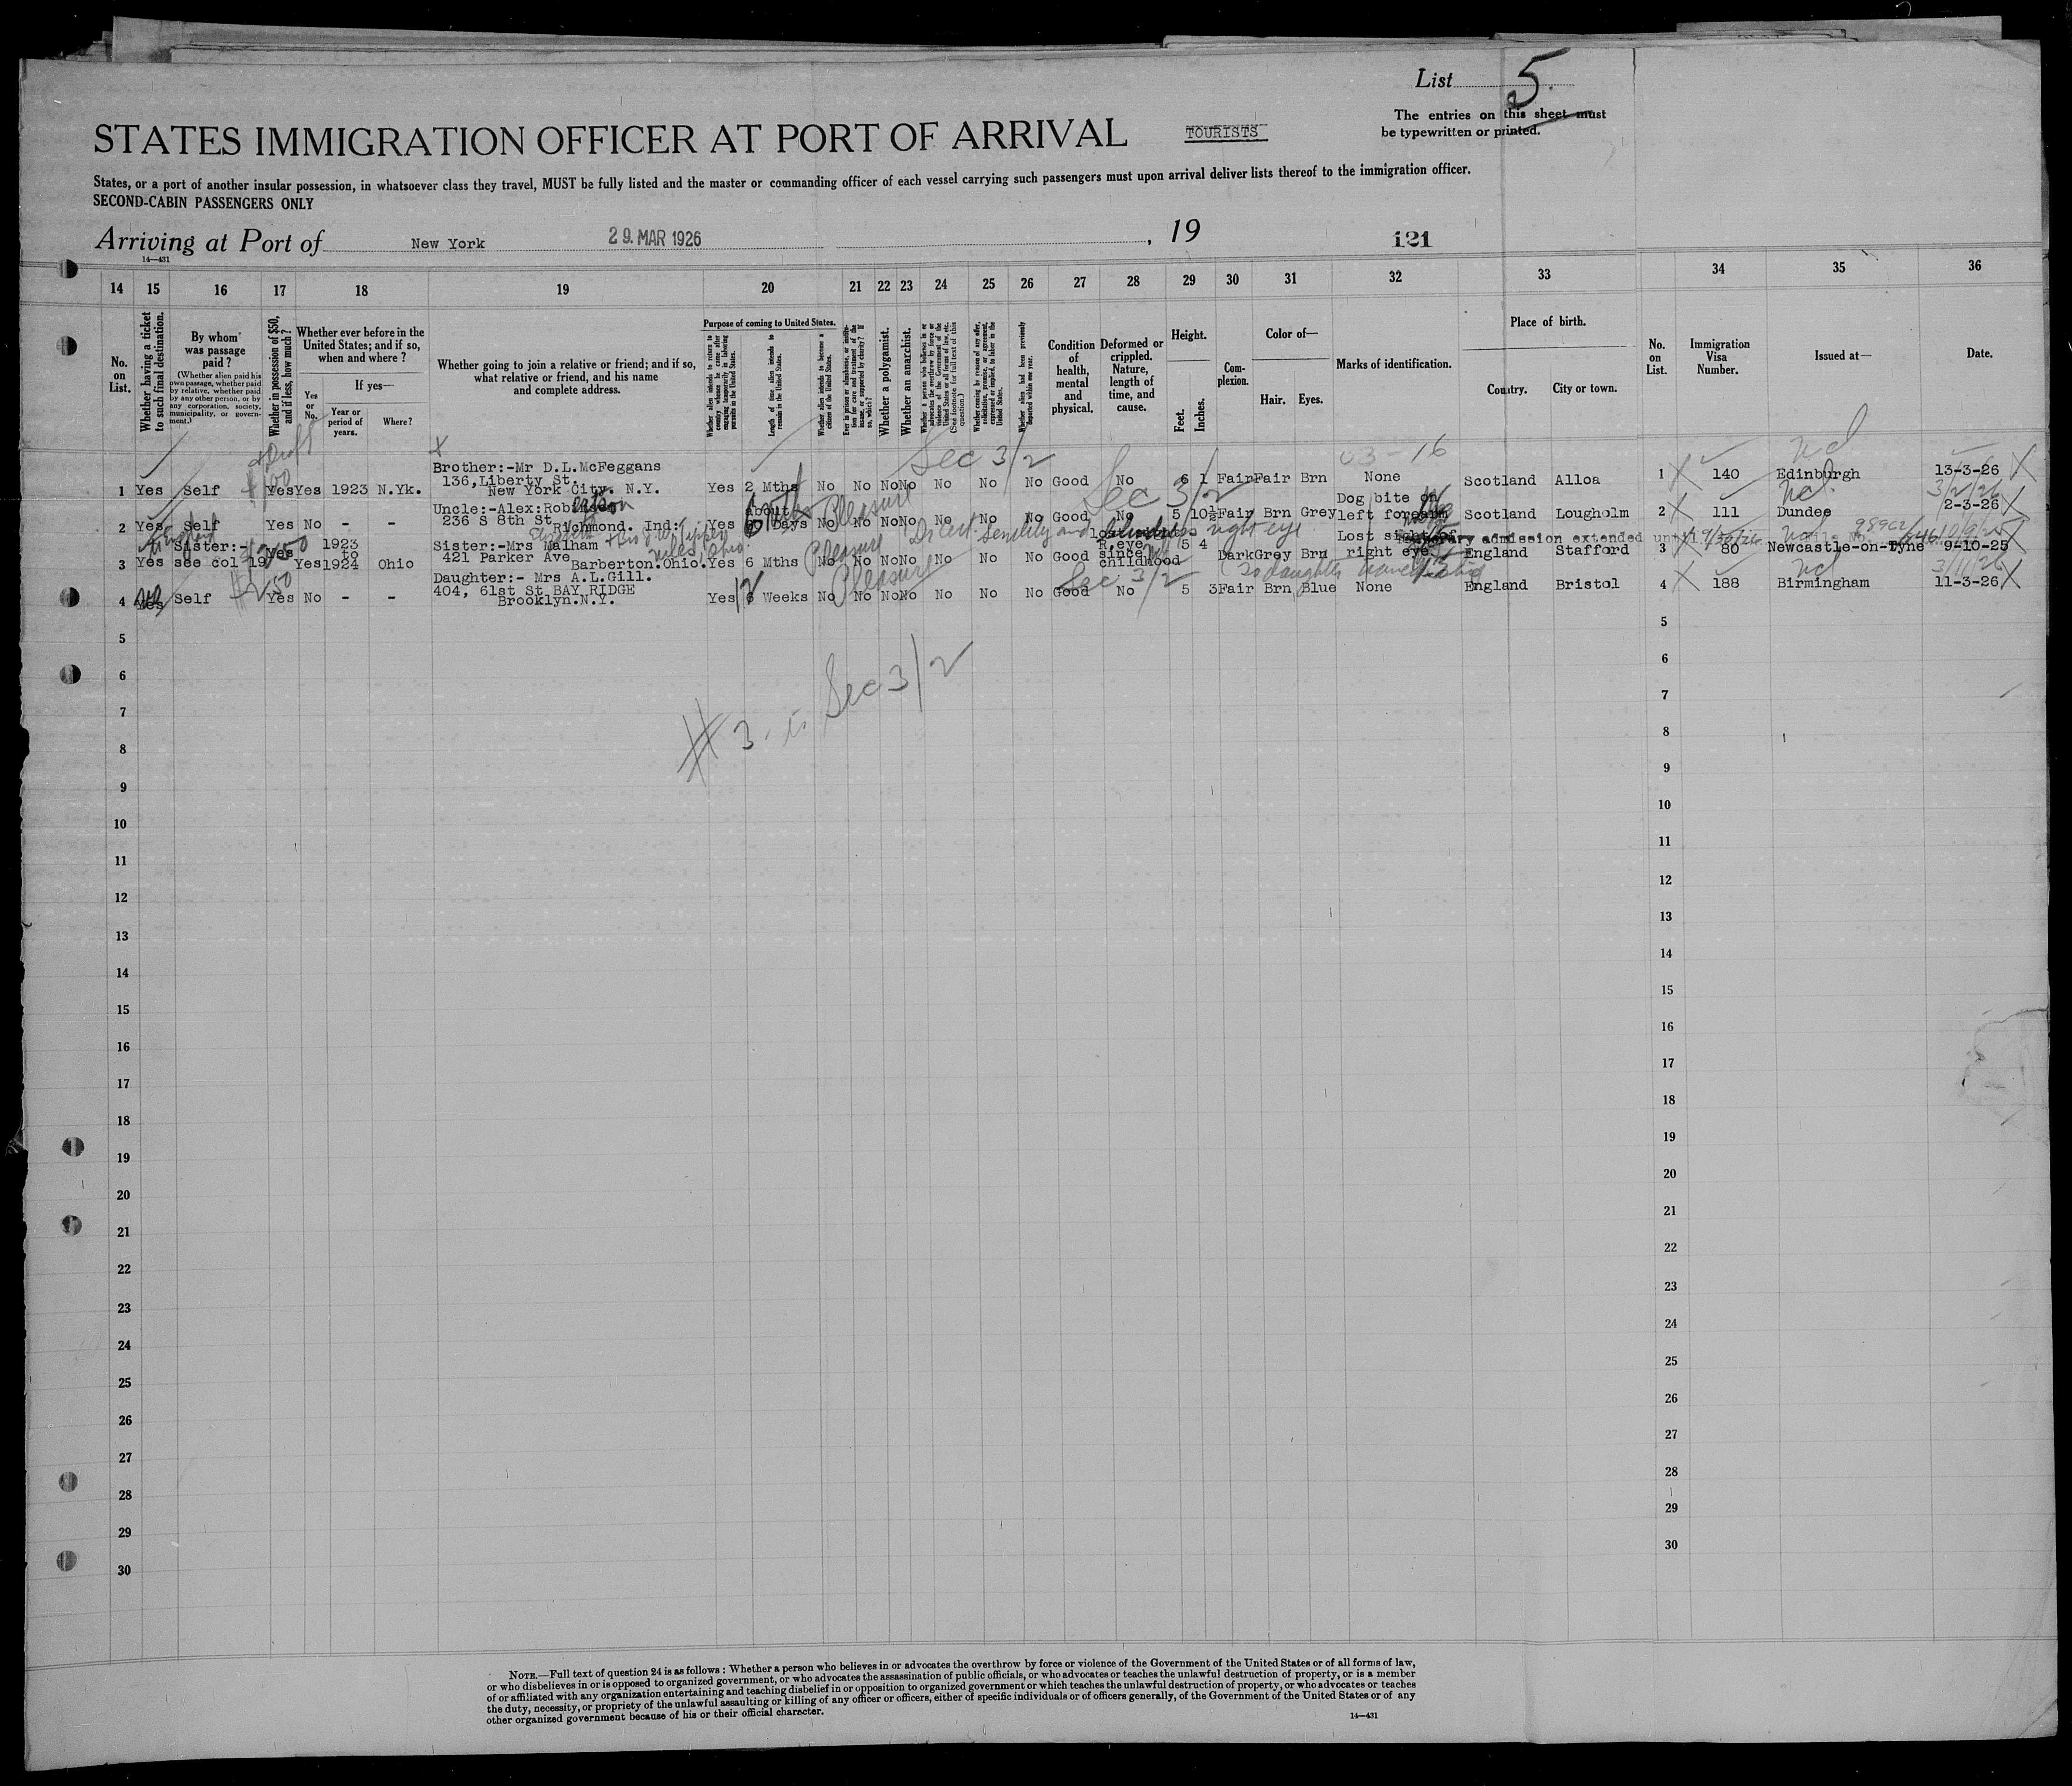 List 5.
The entries on this sheet must
be typewritten or printed.
STATES IMMIGRATION OFFICER AT PORT OF ARRIVAL TOURISTS
States, or a port of another insular possession, in whatsoever class they travel, MUST be fully listed and the master or commanding officer of each vessel carrying such passengers must upon arrival deliver lists thereof to the immigration officer.
SECOND-CABIN PASSENGERS ONLY
Arriving at Port of New York 29. MAR 1926 , 19 121
14—431
14 15 16 17 18 19 20 21 22 23 24 25 26 27 28 29 30 31 32 33 34 35 36
No. on List.
Whether having a ticket to such final destination.
By whom was passage paid?
(Whether alien paid his own passage, whether paid by relative, whether paid by any other person, or by any corporation, society, municipality, or government.)
Whether in possession of $50, and if less, how much?
Whether ever before in the United States; and if so, when and where?
If yes—
Yes or No.
Year or period of years.
Where?
Whether going to join a relative or friend; and if so, what relative or friend, and his name and complete address.
Purpose of coming to United States.
Whether alien intends to return to country whence he came after engaging temporarily in laboring pursuits in the United States.
Length of time alien intends to remain in the United States.
Whether alien intends to become a citizen of the United States.
Whether a polygamist.
Whether an anarchist.
Whether a person who believes in or advocates the overthrow by force or violence of the Government of the United States or all forms of law, etc. (See footnote for full text of this question.)
Whether coming by reason of any offer, solicitation, promise, or agreement, expressed or implied, to labor in the United States.
Whether alien had been previously deported within one year.
Condition of health, mental and physical.
Deformed or crippled. Nature, length of time, and cause.
Height.
Feet.
Inches.
Complexion.
Color of—
Hair. Eyes.
Marks of identification.
Place of birth.
Country. City or town.
No. on List.
Immigration Visa Number.
Issued at—
Date.
+Draft
$100
Sec 3/2
03-16
nd
Brother:-Mr D.L.McFeggans
136,Liberty St.
1 Yes Self Yes Yes 1923 N.Yk. New York City. N.Y. Yes 2 Mths No No No No No No No Good No 6 1 Fair Fair Brn None Scotland Alloa 1 140 Edinburgh 13-3-26
Sec 3/2
nd
3/2/26
Uncle:-Alex:Robinson
236 S 8th St. about Pleasure Dog bite on
2 Yes Self Yes No - - Richmond. Ind: Yes Days No No No No No No No Good No 5 10½ Fair Brn Grey left forearm Scotland Lougholm 2 111 Dundee 2-3-26
England
Sister:- $2450 1923 Sister:-Mrs Malham Niles, Ohio. Pleasure Dr cert. Senility and right eye Lost sight of
Temporary admission extended until 9/30/26 File No.
to 421 Parker Ave R.eye 5 4
3 Yes see col 19 Yes Yes 1924 Ohio Barberton.Ohio. Yes 6 Mths No No No No No No No Good since childhood Dark Grey Brn right eye England Stafford 3 80 Newcastle-on-Tyne 9-10-25
nd
3/11/26
Daughter:- Mrs A.L.Gill. Pleasure Sec 3/2
$250 404, 61st St BAY RIDGE
4 Yes Self Yes No - - Brooklyn.N.Y. Yes 12 Weeks No No No No No No No Good No 5 3 Fair Brn Blue None England Bristol 4 188 Birmingham 11-3-26
5 5
6 6
# 3 - is Sec 3/2
7 7
8 8
9 9
10 10
11 11
12 12
13 13
14 14
15 15
16 16
17 17
18 18
19 19
20 20
21 21
22 22
23 23
24 24
25 25
26 26
27 27
28 28
29 29
30 30
NOTE.—Full text of question 24 is as follows: Whether a person who believes in or advocates the overthrow by force or violence of the Government of the United States or of all forms of law,
or who disbelieves in or is opposed to organized government, or who advocates the assassination of public officials, or who advocates or teaches the unlawful destruction of property, or is a member
of or affiliated with any organization entertaining and teaching disbelief in or opposition to organized government or which teaches the unlawful destruction of property, or who advocates or teaches
the duty, necessity, or propriety of the unlawful assaulting or killing of any officer or officers, either of specific individuals or of officers generally, of the Government of the United States or of any
other organized government because of his or their official character.
14—431